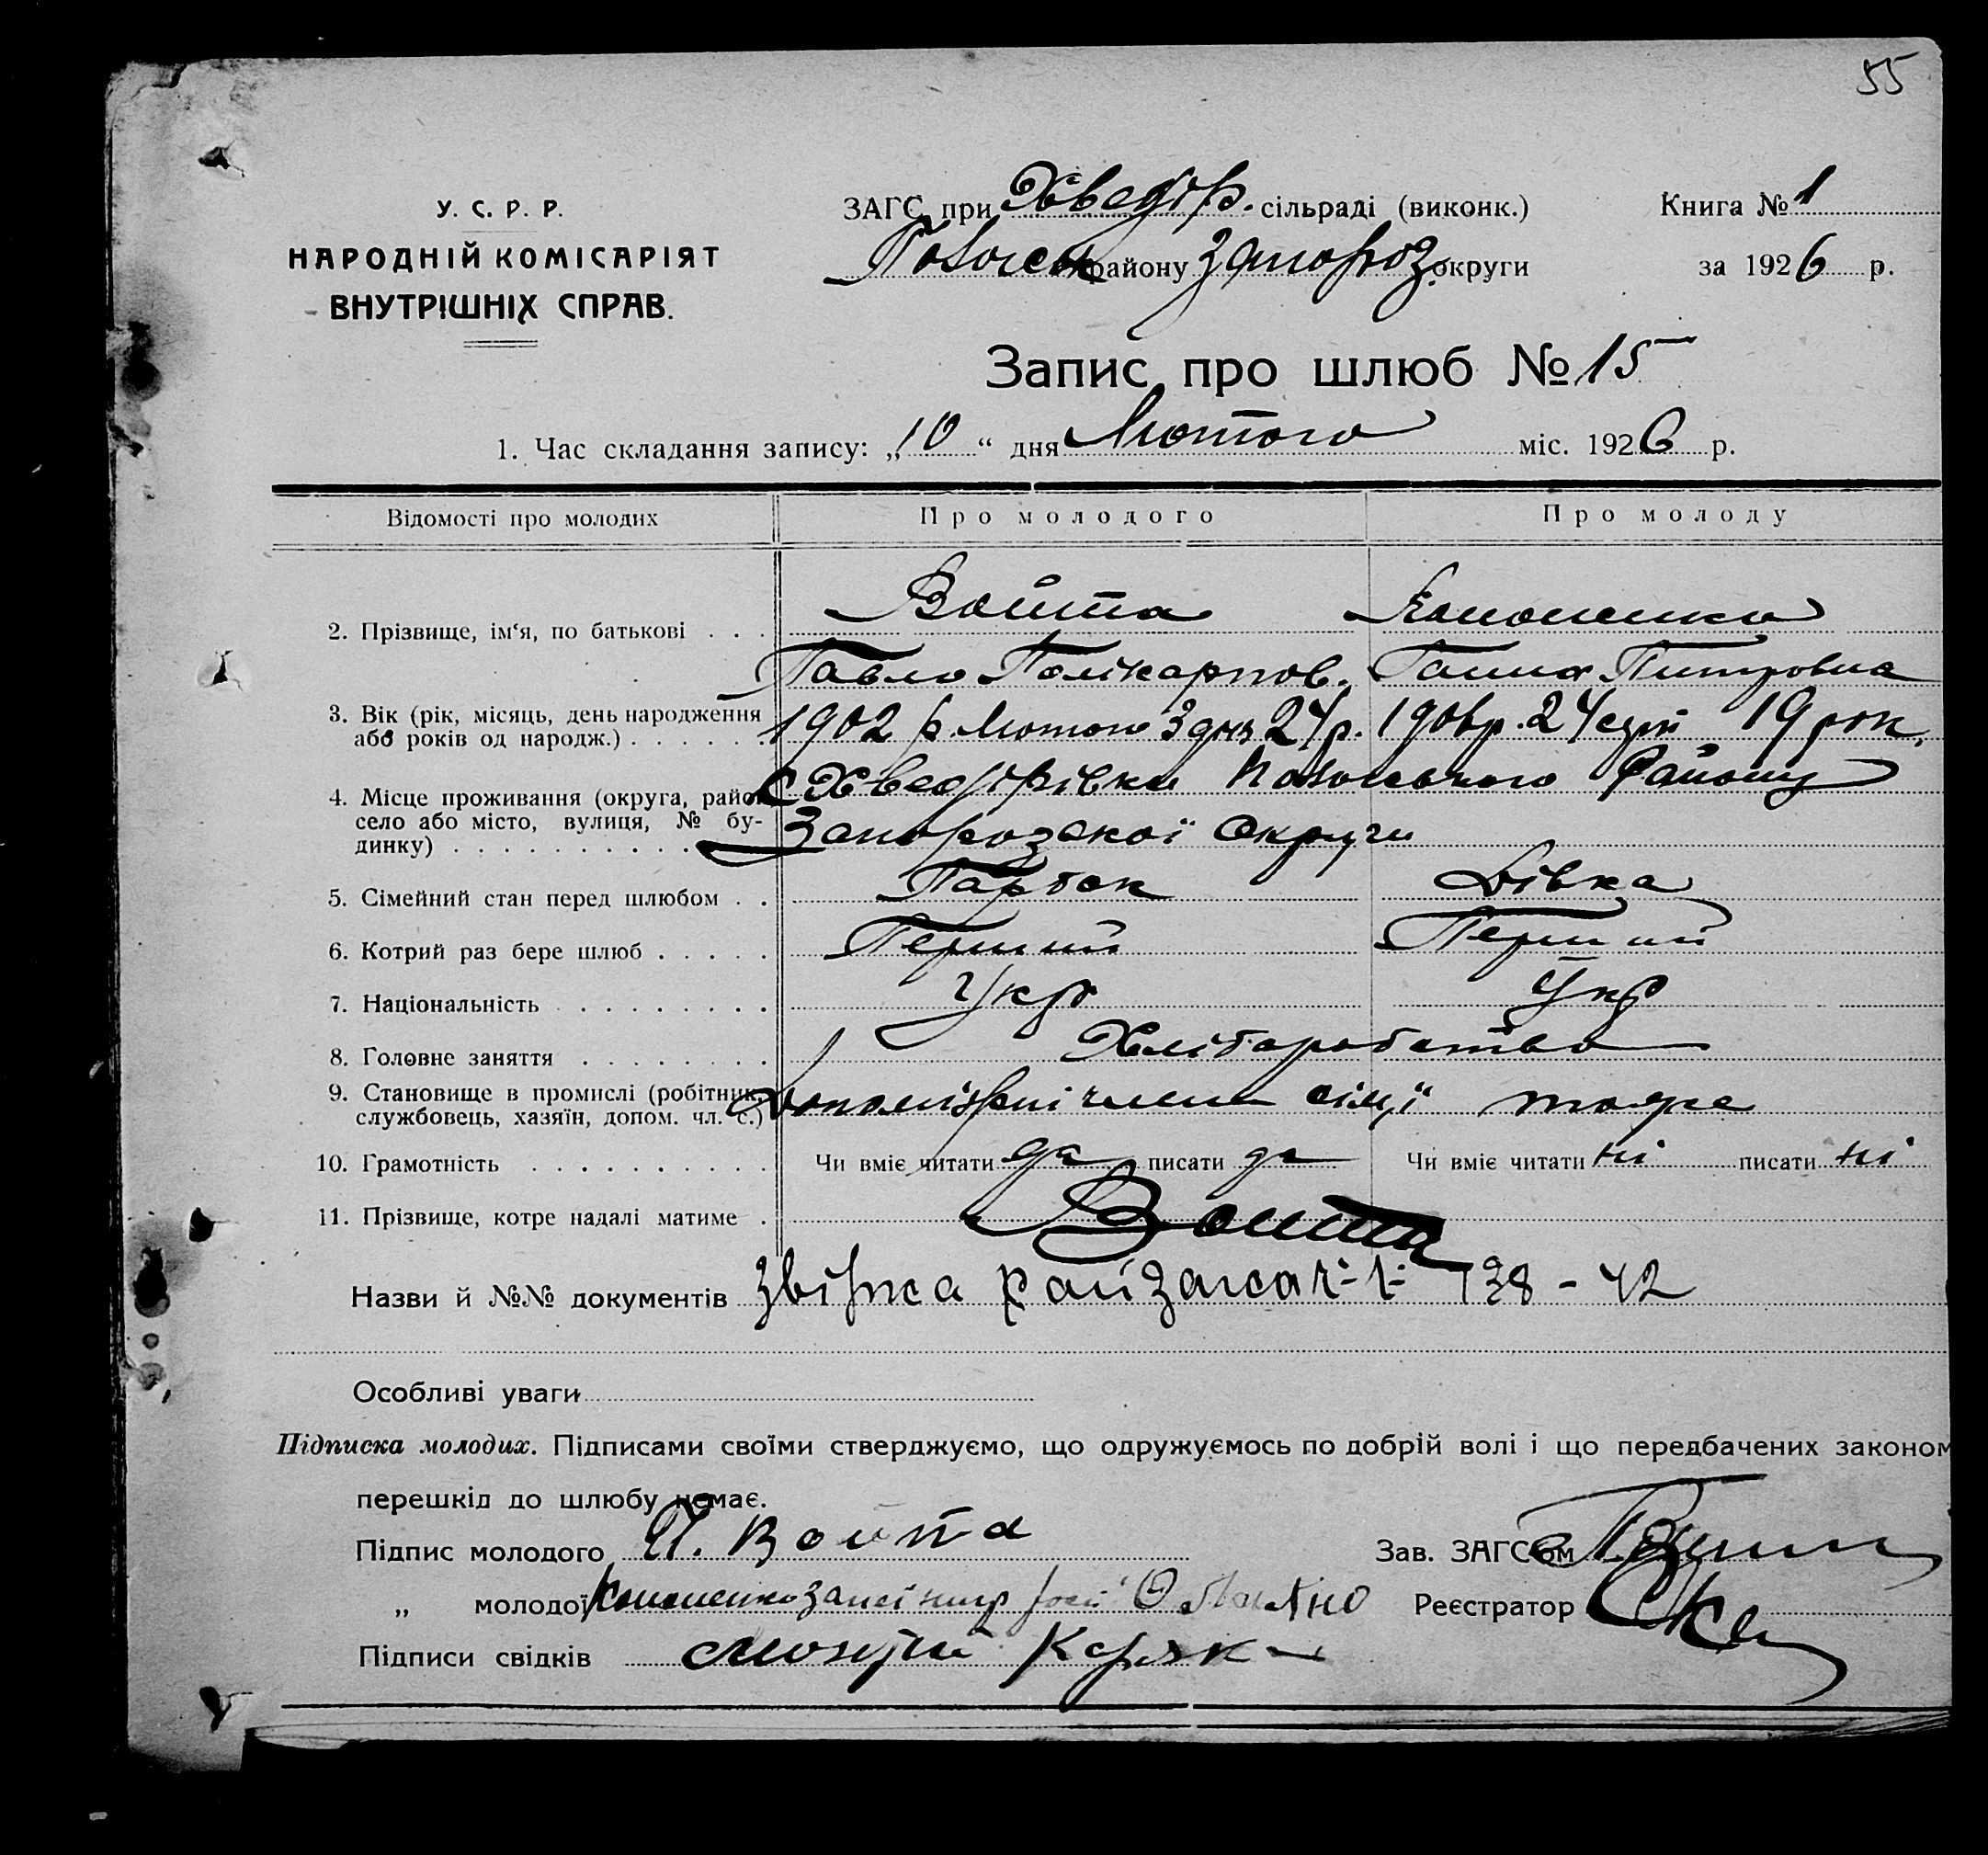 55
У. С. Р. Р.
НАРОДНІЙ КОМІСАРІЯТ
ВНУТРІШНІХ СПРАВ.
ЗАГС при Хведір. сільраді (виконк.) Книга № 1
району Запороз. округи за 1926 р.
Запис про шлюб № 15
1. Час складання запису: „10“ дня Лютого міс. 1926 р.
Відомості про молодих Про молодого Про молоду
2. Прізвище, ім'я, по батькові . . . Войта Кононенко
Павло Полікарпов. Ганна Питровна
3. Вік (рік, місяць, день народження або років од народж.) . . . . . . 1902 р Лютого 3 дня 24 р. 1906 р. 24 19 рок.
4. Місце проживання (округа, район село або місто, вулиця, № будинку) . . . . . . . . . . с Хведірівки Району
Запорозскої Округи
5. Сімейний стан перед шлюбом . . Парубок Дівка
6. Котрий раз бере шлюб . . . . . Перший Перший
7. Національність . . . . . . . . Укр Укр
8. Головне заняття . . . . . . . Хліборобство
9. Становище в промислі (робітник, службовець, хазяїн, допом. чл. с.) члени сімї тоже
10. Грамотність . . . . . . . . . . Чи вміє читати да писати да Чи вміє читати ні писати ні
11. Прізвище, котре надалі матиме . Войта
Назви й №№ документів звірка райзагса ч. 1 - 42
Особливі уваги
Підписка молодих. Підписами своїми стверджуємо, що одружуємось по добрій волі і що передбачених законом
перешкід до шлюбу немає.
Підпис молодого П. Войта Зав. ЗАГС'ом
„ молодої Кононенко Реєстратор
Підписи свідків